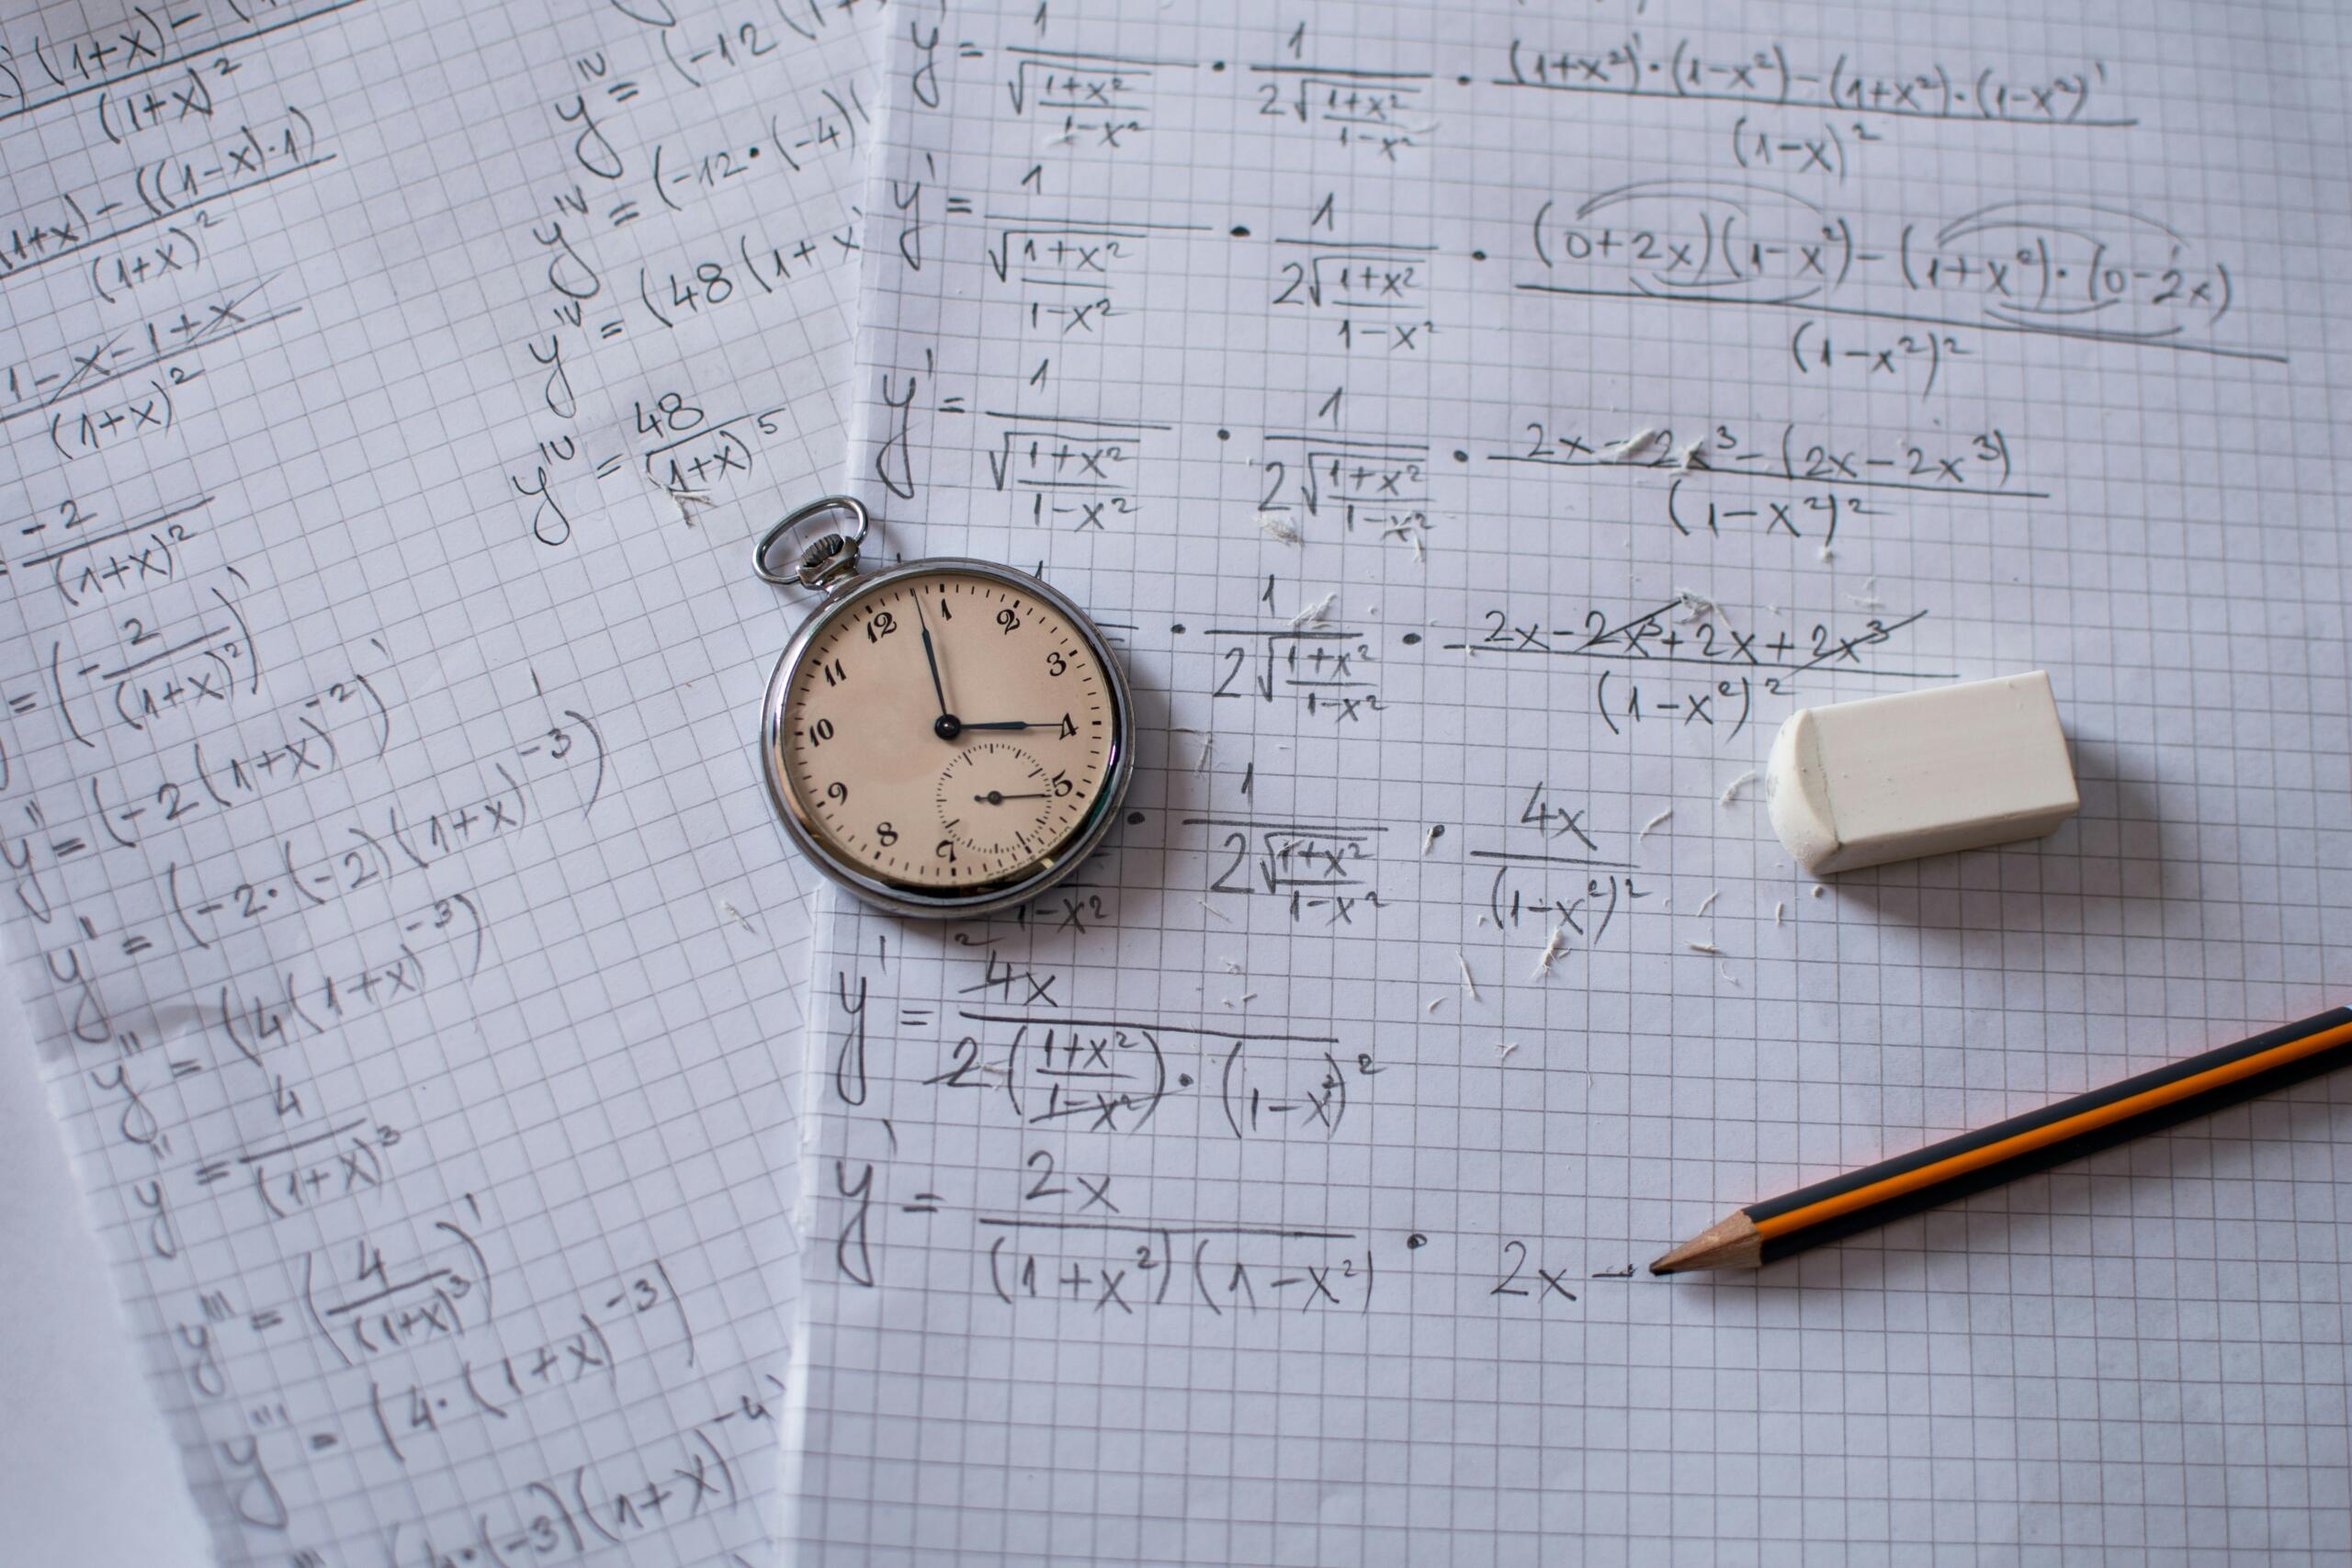 (1+x) -
(1+x)²
1+x) - ((1-x)·1)
(1+x)²
1-x-1+x
(1+x)²
-2
(1+x)²
= (- 2/(1+x)²)'
y'' = (-2(1+x)⁻²)'
y' = (-2·(-2)(1+x)⁻³)'
y'' = (4(1+x)⁻³)
y'' = 4/(1+x)³
y''' = (4/(1+x)³)'
y''' = (4·(1+x)⁻³)
(4·(-3)(1+x)⁻⁴)'
yᴵⱽ = (-12(1+
yᴵⱽ = (-12·(-4)(
yᴵⱽ = (48(1+x
yᴵⱽ = 48/(1+x)⁵
y' = 1/√((1+x²)/(1-x²)) · 1/(2√((1+x²)/(1-x²))) · ((1+x²)'·(1-x²)-(1+x²)·(1-x²)')/(1-x)²
y' = 1/√((1+x²)/(1-x²)) · 1/(2√((1+x²)/(1-x²))) · ((0+2x)(1-x²)-(1+x²)·(0-2x))/(1-x²)²
y' = 1/√((1+x²)/(1-x²)) · 1/(2√((1+x²)/(1-x²))) · (2x-2x³-(2x-2x³))/(1-x²)²
1 · 1/(2√((1+x²)/(1-x²))) · (2x-2x³+2x+2x³)/(1-x²)²
1-x² · 1/(2√((1+x²)/(1-x²))) · 4x/(1-x²)²
2
y' = 4x/(2((1+x²)/(1-x²))·(1-x²)²)
y' = 2x/((1+x²)(1-x²)) · 2x -
12 1 2 3 4 5 7 8 9 10 11